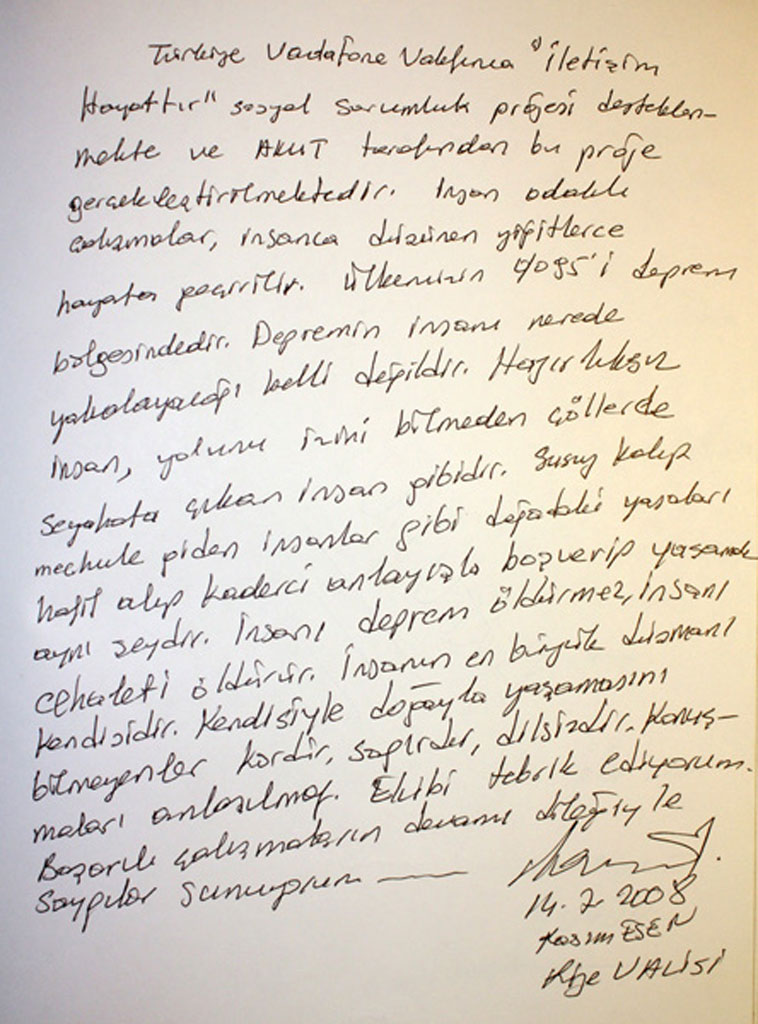 Türkiye Vodafone Vakfınca "İletişim
Hayattır" sosyal sorumluk projesi desteklen-
mekte ve AKUT tarafından bu proje
gerçekleştirilmektedir. İnsan odaklı
çalışmalar, insanca düşünen yiğitlerce
hayata geçirilir. Ülkemizin %95'i deprem
bölgesindedir. Depremin insanı nerede
yakalayacağı belli değildir. Hazırlıksız
insan, yolunu izini bilmeden çöllerde
seyahata çıkan insan gibidir. Susuz kalıp
mechule giden insanlar gibi doğadaki yasaları
hafif alıp kaderci anlayışla boşverip yaşamak
aynı şeydir. İnsanı deprem öldürmez, insanı
cehaleti öldürür. İnsanın en büyük düşmanı
kendisidir. Kendisiyle doğayla yaşamasını
bilmeyenler kördür, sağırdır, dilsizdir. Konuş-
maları anlaşılmaz. Ekibi tebrik ediyorum.
Başarılı çalışmaların devamı dileğiyle
Saygılar sunuyorum
14.2.2008
Kasım ESEN
Rize VALİSİ